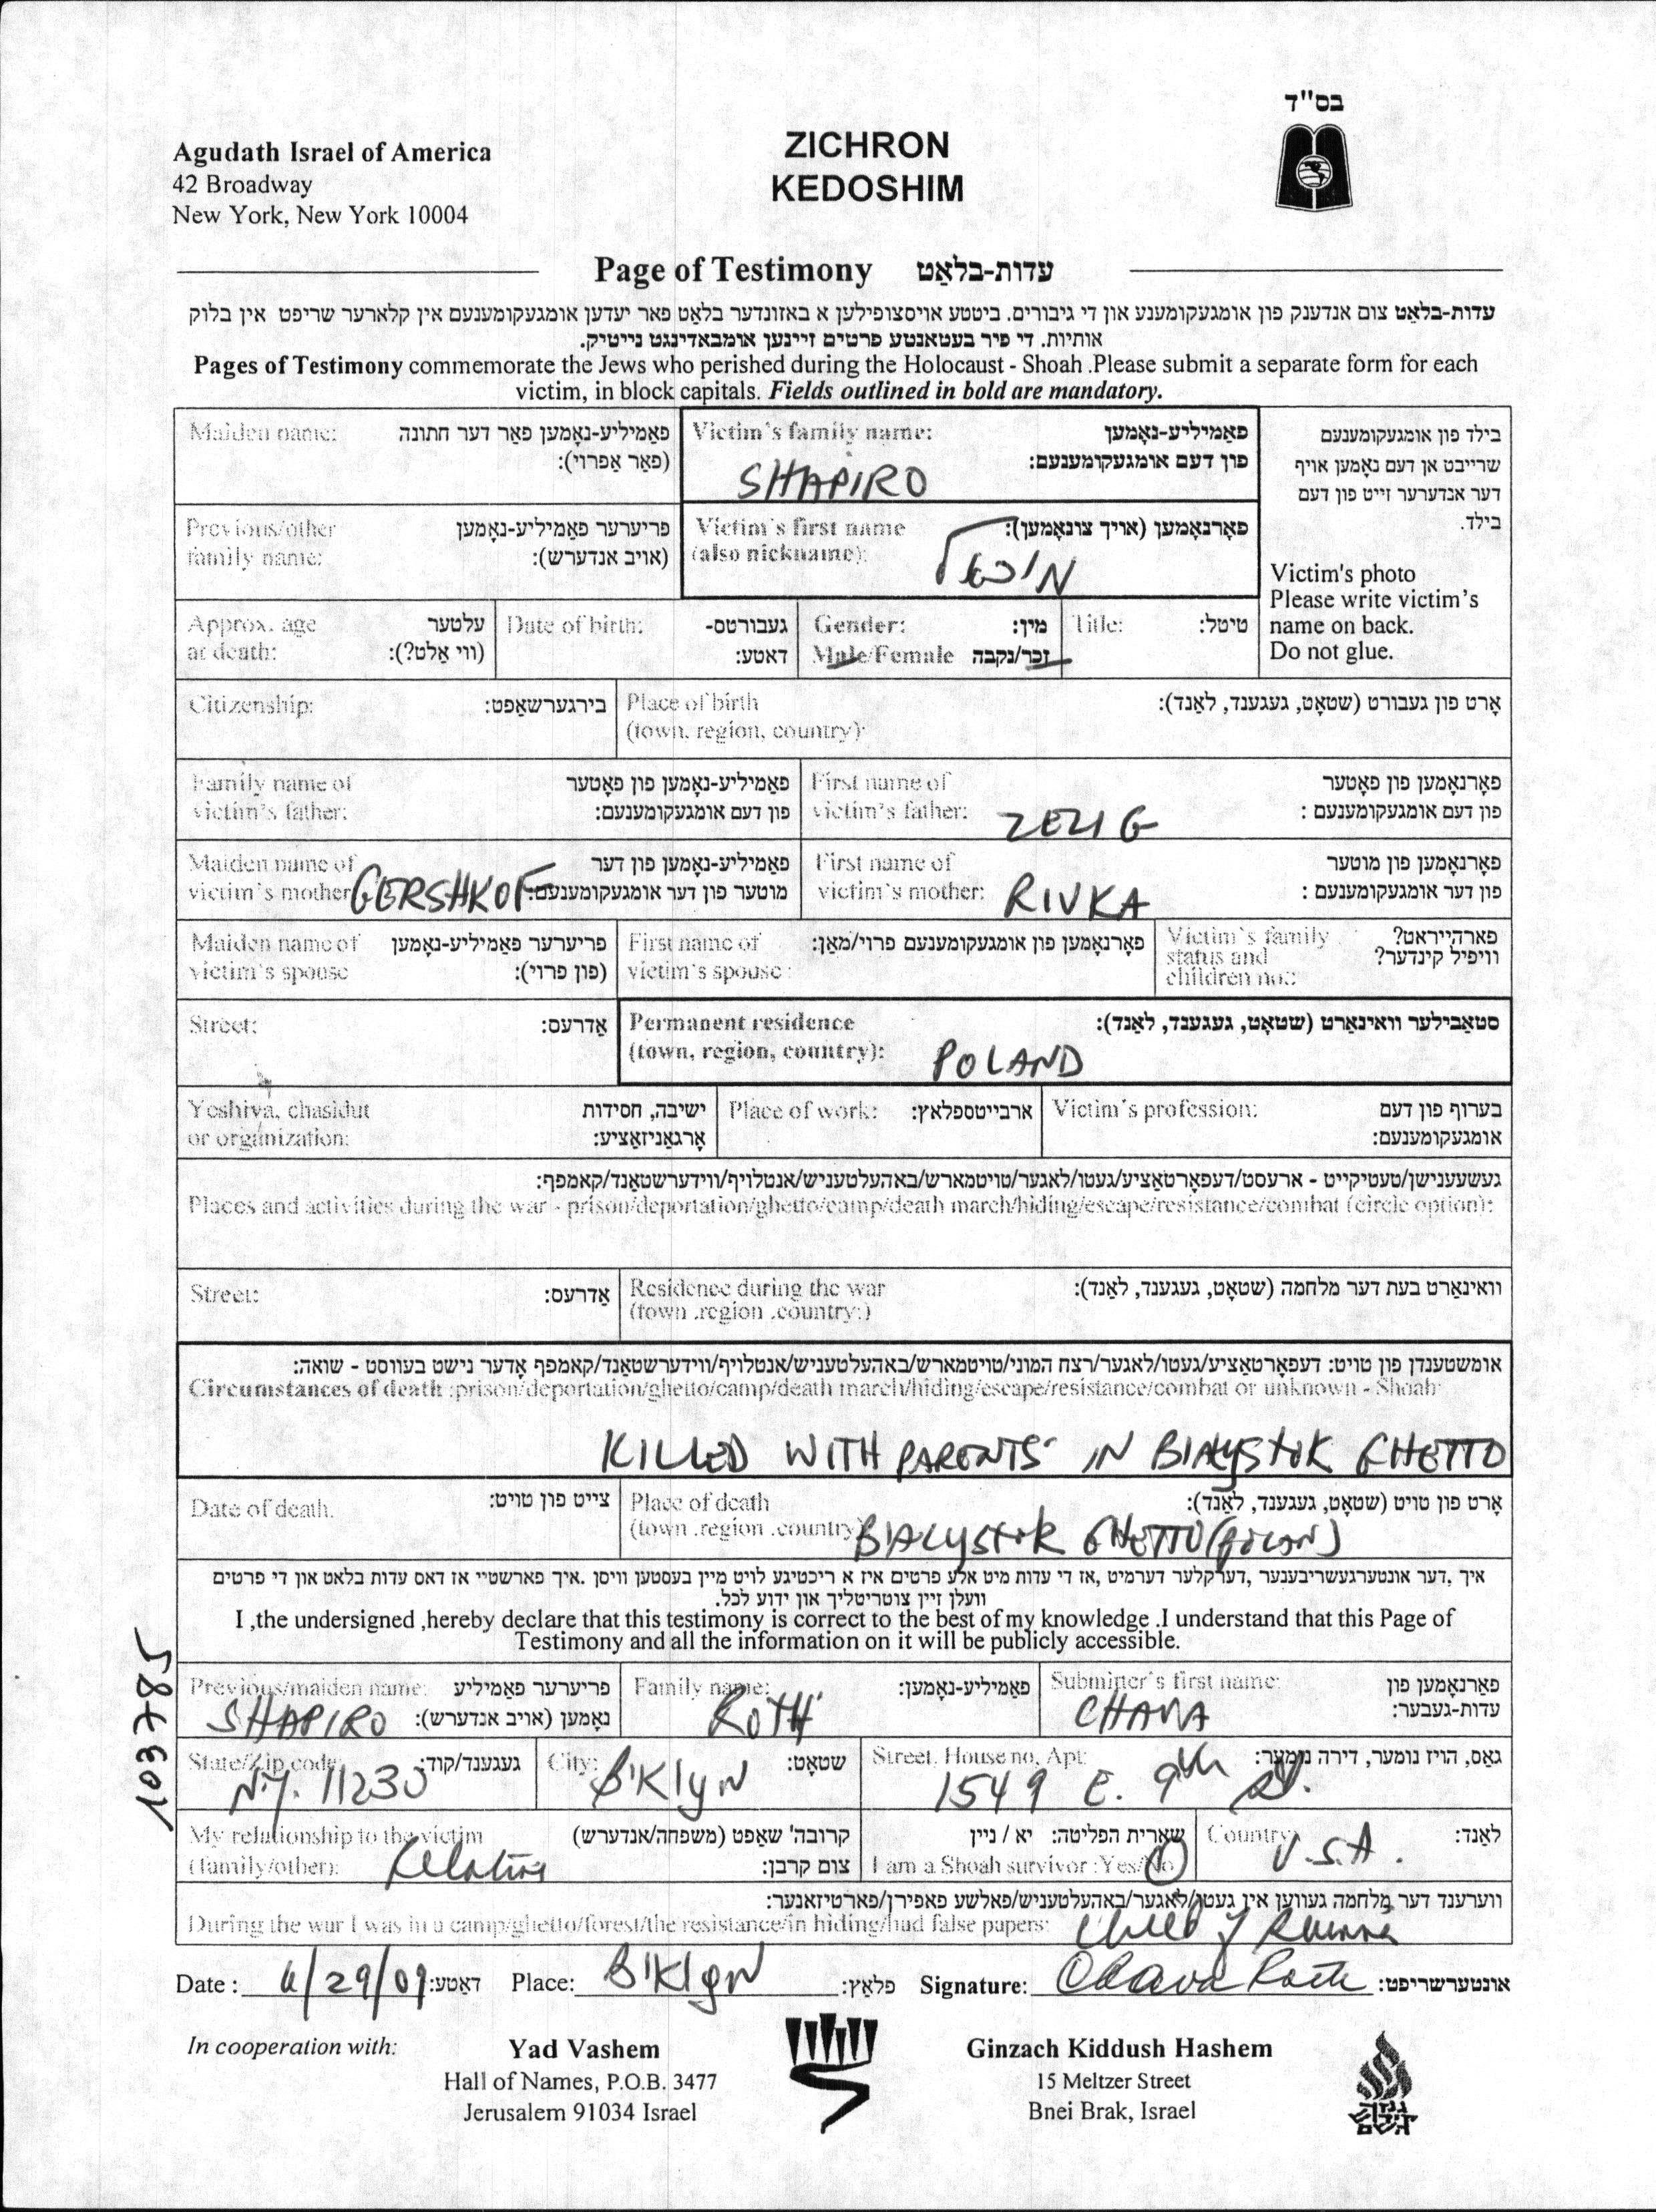 בס"ד
Agudath Israel of America
42 Broadway
New York, New York 10004
ZICHRON
KEDOSHIM
Page of Testimony עדות-בלאַט
עדות-בלאַט צום אנדענק פון אומגעקומענע און די גיבורים. ביטטע אויסצופילען א באזונדער בלאַט פאר יעדען אומגעקומענעם אין קלארער שריפט אין בלוק
אותיות. די פיר בעטאנטע פרטים זיינען אומבאדינגט נייטיק.
Pages of Testimony commemorate the Jews who perished during the Holocaust - Shoah .Please submit a separate form for each
victim, in block capitals. Fields outlined in bold are mandatory.
Maiden name: פאַמיליע-נאָמען פאַר דער חתונה
(פאַר אַפרוי):
Victim's family name: פאַמיליע-נאָמען
פון דעם אומגעקומענעם:
SHAPIRO
בילד פון אומגעקומענעם
שרייבט אן דעם נאָמען אויף
דער אנדערער זייט פון דעם
בילד.
Victim's photo
Please write victim's
name on back.
Do not glue.
Previous/other פריערער פאַמיליע-נאָמען
family name: (אויב אנדערש):
Victim's first name פאָרנאָמען (אויך צונאָמען):
(also nickname):
Approx. age עלטער
at death: (ווי אַלט?):
Date of birth: געבורטס-
דאטע:
Gender: מין:
Male/Female זכר/נקבה
Title: טיטל:
Citizenship: בירגערשאַפט:
Place of birth אָרט פון געבורט (שטאָט, געגענד, לאַנד):
(town, region, country):
Family name of פאַמיליע-נאָמען פון פאָטער
victim's father: פון דעם אומגעקומענעם:
First name of פאָרנאָמען פון פאָטער
victim's father: ZELIG פון דעם אומגעקומענעם :
Maiden name of פאַמיליע-נאָמען פון דער
victim's mother: GERSHKOF מוטער פון דער אומגעקומענעם:
First name of פאָרנאָמען פון מוטער
victim's mother: RIVKA פון דער אומגעקומענעם :
Maiden name of פריערער פאַמיליע-נאָמען
victim's spouse (פון פרוי):
First name of פאָרנאָמען פון אומגעקומענעם פרוי/מאַן:
victim's spouse :
Victim's family פארהייראט?
status and וויפיל קינדער?
children no.:
Street: אַדרעס:
Permanent residence סטאַבילער וואינאָרט (שטאָט, געגענד, לאַנד):
(town, region, country): POLAND
Yeshiva, chasidut ישיבה, חסידות
or organization: אָרגאַניזאַציע:
Place of work: ארבייטספלאץ:
Victim's profession: בערוף פון דעם
אומגעקומענעם:
געשעענישן/טעטיקייט - ארעסט/דעפאָרטאַציע/געטו/לאגער/טויטמארש/באהעלטעניש/אנטלויף/ווידערשטאַנד/קאמפף:
Places and activities during the war - prison/deportation/ghetto/camp/death march/hiding/escape/resistance/combat (circle option):
Street: אַדרעס:
Residence during the war וואינאָרט בעת דער מלחמה (שטאָט, געגענד, לאַנד):
(town .region .country:)
אומשטענדן פון טויט: דעפאָרטאַציע/געטו/לאגער/רצח המוני/טויטמארש/באהעלטעניש/אנטלויף/ווידערשטאַנד/קאמפף אָדער נישט בעווסט - שואה:
Circumstances of death :prison/deportation/ghetto/camp/death march/hiding/escape/resistance/combat or unknown - Shoah:
KILLED WITH PARENTS IN BIALYSTOK GHETTO
Date of death. צייט פון טויט:
Place of death אָרט פון טויט (שטאָט, געגענד, לאַנד):
(town .region .country) BIALYSTOK GHETTO
איך ,דער אונטערגעשריבענער ,דערקלער דערמיט ,אז די עדות מיט אלע פרטים איז א ריכטיגע לויט מיין בעסטען וויסן .איך פארשטיי אז דאס עדות בלאט און די פרטים
וועלן זיין צוטריטליך און ידוע לכל.
I ,the undersigned ,hereby declare that this testimony is correct to the best of my knowledge .I understand that this Page of
Testimony and all the information on it will be publicly accessible.
103785
Previous/maiden name: פריערער פאַמיליע
SHAPIRO נאָמען (אויב אנדערש):
Family name: פאַמיליע-נאָמען:
ROTH
Submitter's first name: פאָרנאָמען פון
CHAVA עדות-געבער:
State/Zip code: געגענד/קוד:
N.Y. 11230
City: שטאָט:
B'Klyn
Street. House no, Apt: גאַס, הויז נומער, דירה נומער:
1549 E. 9th St.
My relationship to the victim קרובה' שאַפט (משפחה/אנדערש)
(family/other): Relative צום קרבן:
שארית הפליטה: יא / ניין
I am a Shoah survivor :Yes/No
Country: לאַנד:
U.S.A.
ווערענד דער מלחמה געווען אין געטו/לאַגער/באהעלטעניש/פאלשע פאפירן/פארטיזאנער:
During the war I was in a camp/ghetto/forest/the resistance/in hiding/had false papers: Child of
Date : 6/29/09 דאַטע: Place: B'Klyn פלאַץ: Signature: Chava Roth אונטערשריפט:
In cooperation with:
Yad Vashem
Hall of Names, P.O.B. 3477
Jerusalem 91034 Israel
Ginzach Kiddush Hashem
15 Meltzer Street
Bnei Brak, Israel